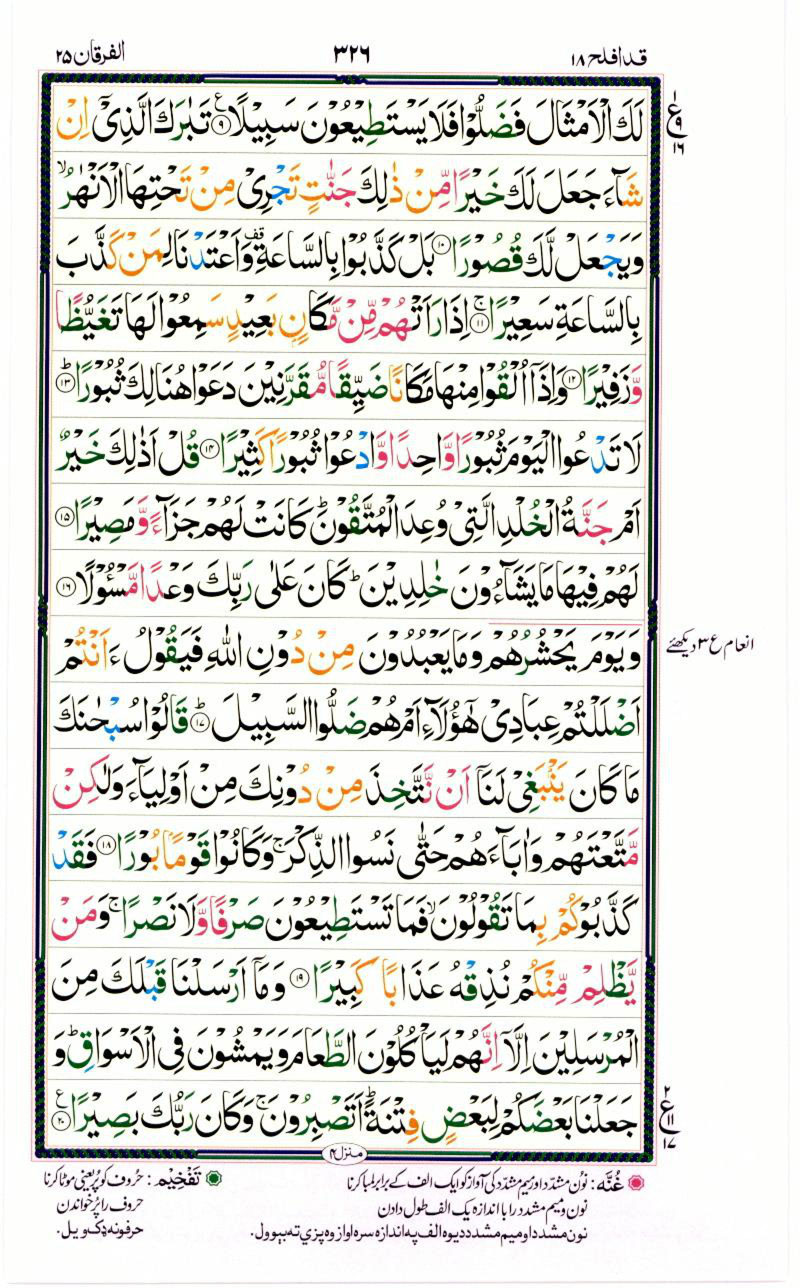 قدافلح ١٨ ٣٢٦ الفرقان ٢٥
لَكَ الْاَمْثَالَ فَضَلُّوْا فَلَا يَسْتَطِيْعُوْنَ سَبِيْلًا ۟ۧ ٩ تَبٰرَكَ الَّذِيْۤ اِنْ
ع ٩ ١٦
شَآءَ جَعَلَ لَكَ خَيْرًا مِّنْ ذٰلِكَ جَنّٰتٍ تَجْرِيْ مِنْ تَحْتِهَا الْاَنْهٰرُ ۙ
وَيَجْعَلْ لَّكَ قُصُوْرًا ١٠ بَلْ كَذَّبُوْا بِالسَّاعَةِ ۫ وَاَعْتَدْنَا لِمَنْ كَذَّبَ
بِالسَّاعَةِ سَعِيْرًا ۚ ١١ اِذَا رَاَتْهُمْ مِّنْ مَّكَانٍۭ بَعِيْدٍ سَمِعُوْا لَهَا تَغَيُّظًا
وَّزَفِيْرًا ١٢ وَاِذَاۤ اُلْقُوْا مِنْهَا مَكَانًا ضَيِّقًا مُّقَرَّنِيْنَ دَعَوْا هُنَالِكَ ثُبُوْرًا ؕ ١٣
لَا تَدْعُوا الْيَوْمَ ثُبُوْرًا وَّاحِدًا وَّادْعُوْا ثُبُوْرًا كَثِيْرًا ١٤ قُلْ اَذٰلِكَ خَيْرٌ
اَمْ جَنَّةُ الْخُلْدِ الَّتِيْ وُعِدَ الْمُتَّقُوْنَ ؕ كَانَتْ لَهُمْ جَزَآءً وَّمَصِيْرًا ١٥
لَهُمْ فِيْهَا مَا يَشَآءُوْنَ خٰلِدِيْنَ ؕ كَانَ عَلٰى رَبِّكَ وَعْدًا مَّسْـُٔوْلًا ١٦
وَيَوْمَ يَحْشُرُهُمْ وَمَا يَعْبُدُوْنَ مِنْ دُوْنِ اللّٰهِ فَيَقُوْلُ ءَاَنْتُمْ
انعام ع ٣ دیکھئے
اَضْلَلْتُمْ عِبَادِيْ هٰۤؤُلَآءِ اَمْ هُمْ ضَلُّوا السَّبِيْلَ ؕ ١٧ قَالُوْا سُبْحٰنَكَ
مَا كَانَ يَنْۢبَغِيْ لَنَاۤ اَنْ نَّتَّخِذَ مِنْ دُوْنِكَ مِنْ اَوْلِيَآءَ وَلٰكِنْ
مَّتَّعْتَهُمْ وَاٰبَآءَهُمْ حَتّٰى نَسُوا الذِّكْرَ ۚ وَكَانُوْا قَوْمًۢا بُوْرًا ١٨ فَقَدْ
كَذَّبُوْكُمْ بِمَا تَقُوْلُوْنَ ۙ فَمَا تَسْتَطِيْعُوْنَ صَرْفًا وَّلَا نَصْرًا ۚ وَمَنْ
يَّظْلِمْ مِّنْكُمْ نُذِقْهُ عَذَابًا كَبِيْرًا ١٩ وَمَاۤ اَرْسَلْنَا قَبْلَكَ مِنَ
الْمُرْسَلِيْنَ اِلَّاۤ اِنَّهُمْ لَيَاْكُلُوْنَ الطَّعَامَ وَيَمْشُوْنَ فِي الْاَسْوَاقِ ؕ وَ
جَعَلْنَا بَعْضَكُمْ لِبَعْضٍ فِتْنَةً ؕ اَتَصْبِرُوْنَ ۚ وَكَانَ رَبُّكَ بَصِيْرًا ۧ ٢٠
٢ ع ١١ ١٧
منزل ٤
غُنَّه : نُون مشدّد اور میم مشدّد کی آواز کو ایک الف کے برابر لمبا کرنا تَفْخِيْم : حُروف کو پُر یعنی موٹا کرنا
نون و میم مشدد را با اندازہ یک الف طول دادن حروف را پُر خواندن
نون مشدد او میم مشدد د یوہ الف پہ اندازہ سرہ اواز وہ پزې تہ بېوول. حرفونہ ډک ویل.